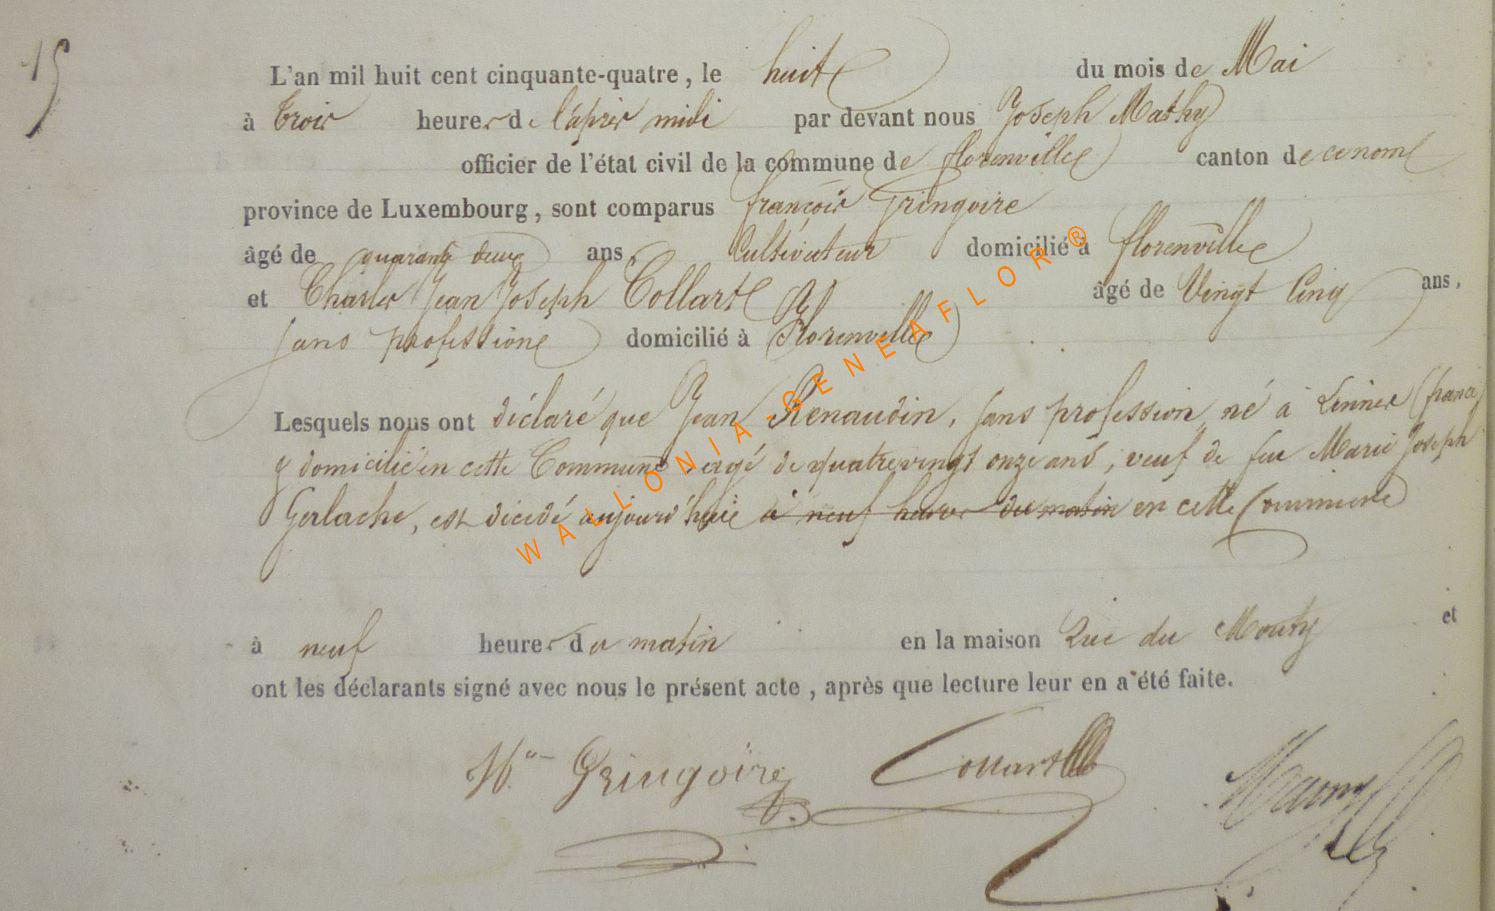 15
L'an mil huit cent cinquante-quatre, le huit du mois de Mai
à trois heures de l'après midi par devant nous Joseph Mathy
officier de l'état civil de la commune de florenville canton de ce nom
province de Luxembourg, sont comparus françois Gringoire
âgé de quarante deux ans Cultivateur domicilié à florenville
et Charles Jean Joseph Collart âgé de Vingt Cinq ans,
sans profession domicilié à Florenville
Lesquels nous ont déclaré que Jean Renaudin, sans profession né à Linnes (france)
& domicilié en cette Commune, agé de quatrevingt onze ans, veuf de feu Marie Joseph
Gerlache, est décédé aujourd'hui à neuf heures du matin en cette Commune
à neuf heures du matin en la maison Rue du Mouty et
ont les déclarants signé avec nous le présent acte, après que lecture leur en a été faite.
Gringoire Collart
WALLONIA-GENEAFLOR ®